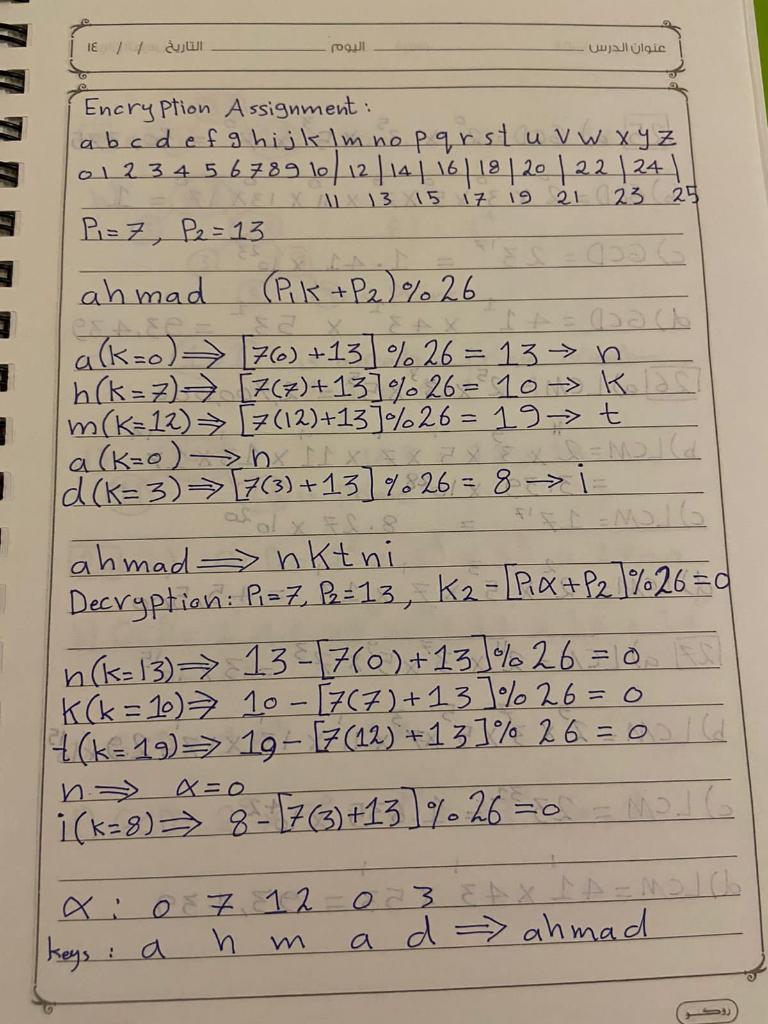 عنوان الدرس ____________ اليوم ____________ التاريخ / / ١٤
Encryption Assignment:
a b c d e f g h i j k l m n o p q r s t u v w x y z
0 1 2 3 4 5 6 7 8 9 10 | 12 | 14 | 16 | 18 | 20 | 22 | 24 |
11 13 15 17 19 21 23 25
P₁=7, P₂=13
ahmad (P₁K+P₂)%26
a(K=0) ⇒ [7(0)+13]%26 = 13 → n
h(K=7) ⇒ [7(7)+13]%26 = 10 → K
m(K=12) ⇒ [7(12)+13]%26 = 19 → t
a(K=0) → n
d(K=3) ⇒ [7(3)+13]%26 = 8 → i
ahmad ⇒ nKtni
Decryption: P₁=7, P₂=13, K₂-[P₁α+P₂]%26=0
n(k=13) ⇒ 13-[7(0)+13]%26 = 0
K(k=10) ⇒ 10-[7(7)+13]%26 = 0
t(k=19) ⇒ 19-[7(12)+13]%26 = 0
n ⇒ α=0
i(k=8) ⇒ 8-[7(3)+13]%26=0
α: 0 7 12 0 3
keys: a h m a d ⇒ ahmad
روكو